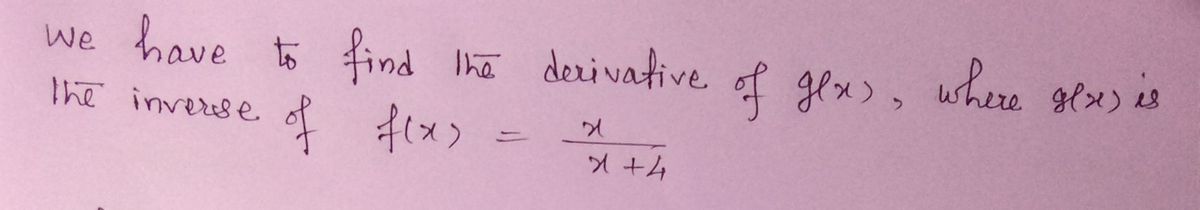 We have to find the derivative of g(x), where g(x) is
the inverse of f(x) = x/(x+4)